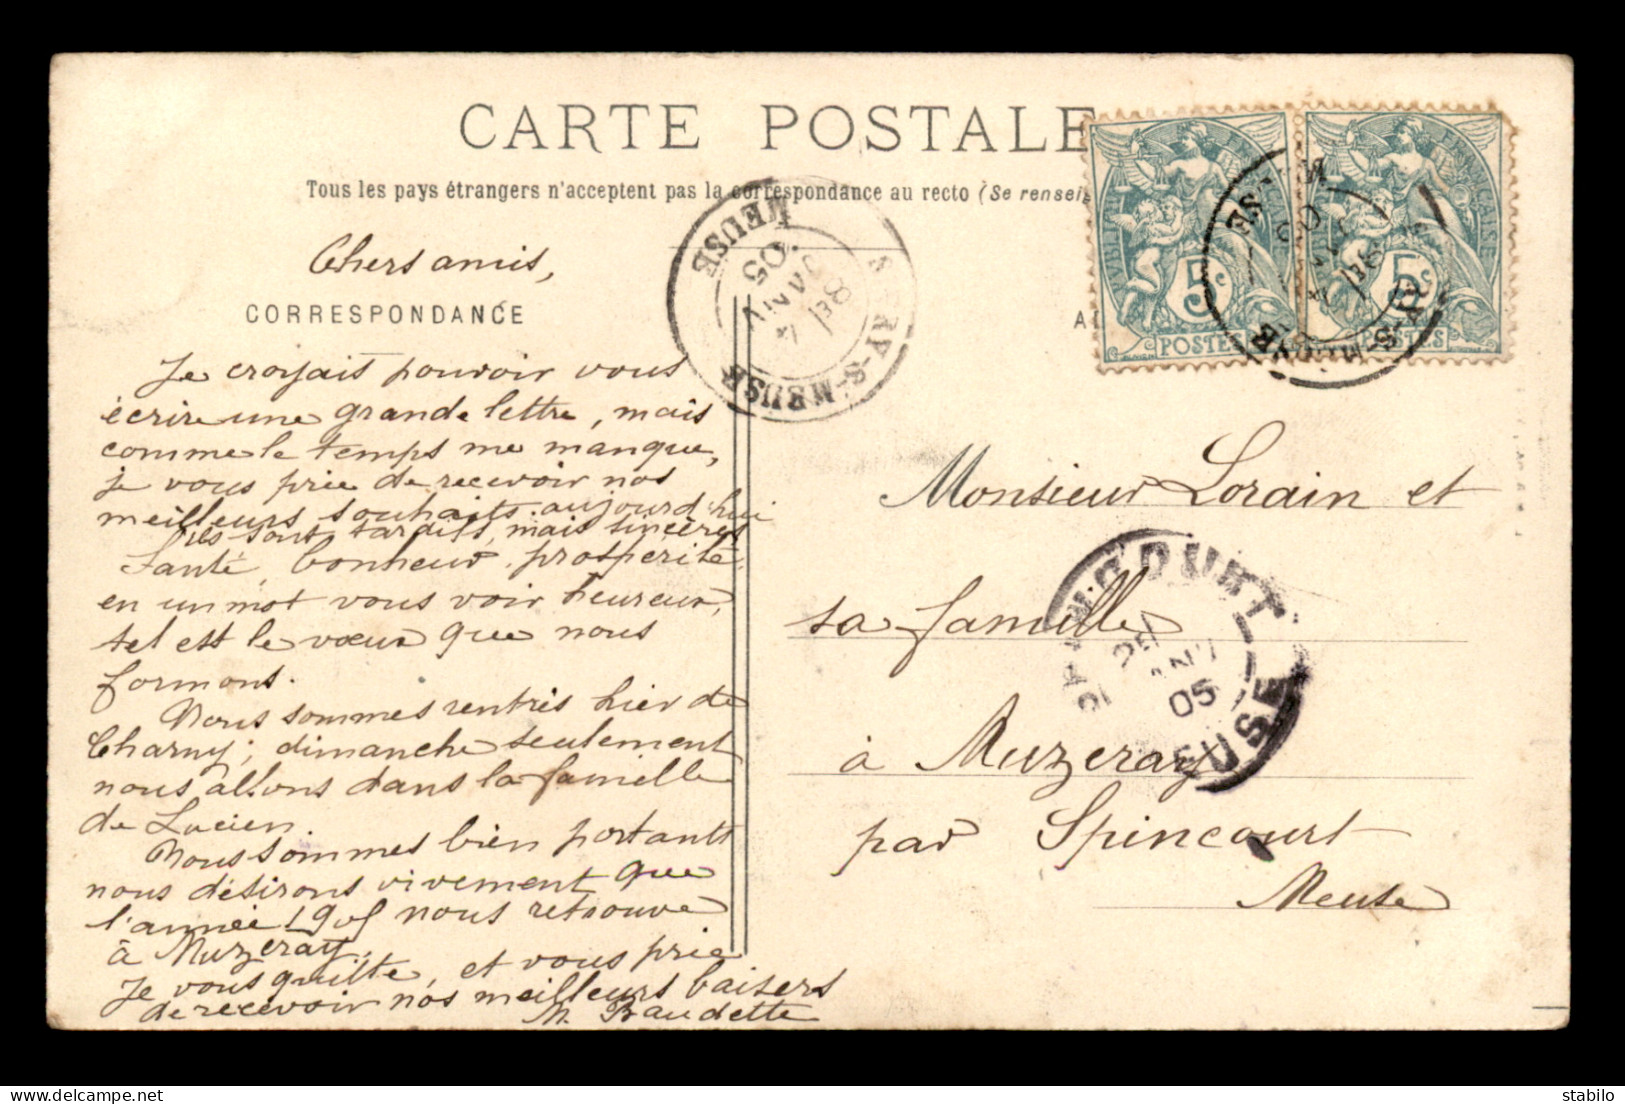 CARTE POSTALE
Tous les pays étrangers n'acceptent pas la correspondance au recto (Se rensei
Chers amis,
CORRESPONDANCE
Je croyais pouvoir vous
écrire une grande lettre, mais
comme le temps me manque,
je vous prie de recevoir nos
meilleurs souhaits. aujourd'hui
ils sont tardifs, mais sincères
Santé, bonheur, prospérité,
en un mot vous voir heureux,
tel est le vœux que nous
formons.
Nous sommes rentrés hier de
Charny; dimanche seulement
nous allons dans la famille
de Lucien
Nous sommes bien portants
nous désirons vivement que
l'année 1905 nous retrouve
à Muzeray.
Je vous quitte, et vous prie
de recevoir nos meilleurs baisers
M. Baudette
A
Monsieur Lorain et
sa famille
à Muzeray
par Spincourt
Meuse
RÉPUBLIQUE FRANÇAISE
5c
POSTES
5c
POSTES
RY-S-MEUSE
8E
4
JANV
05
MEUSE
COURT
05
MEUSE
stabilo